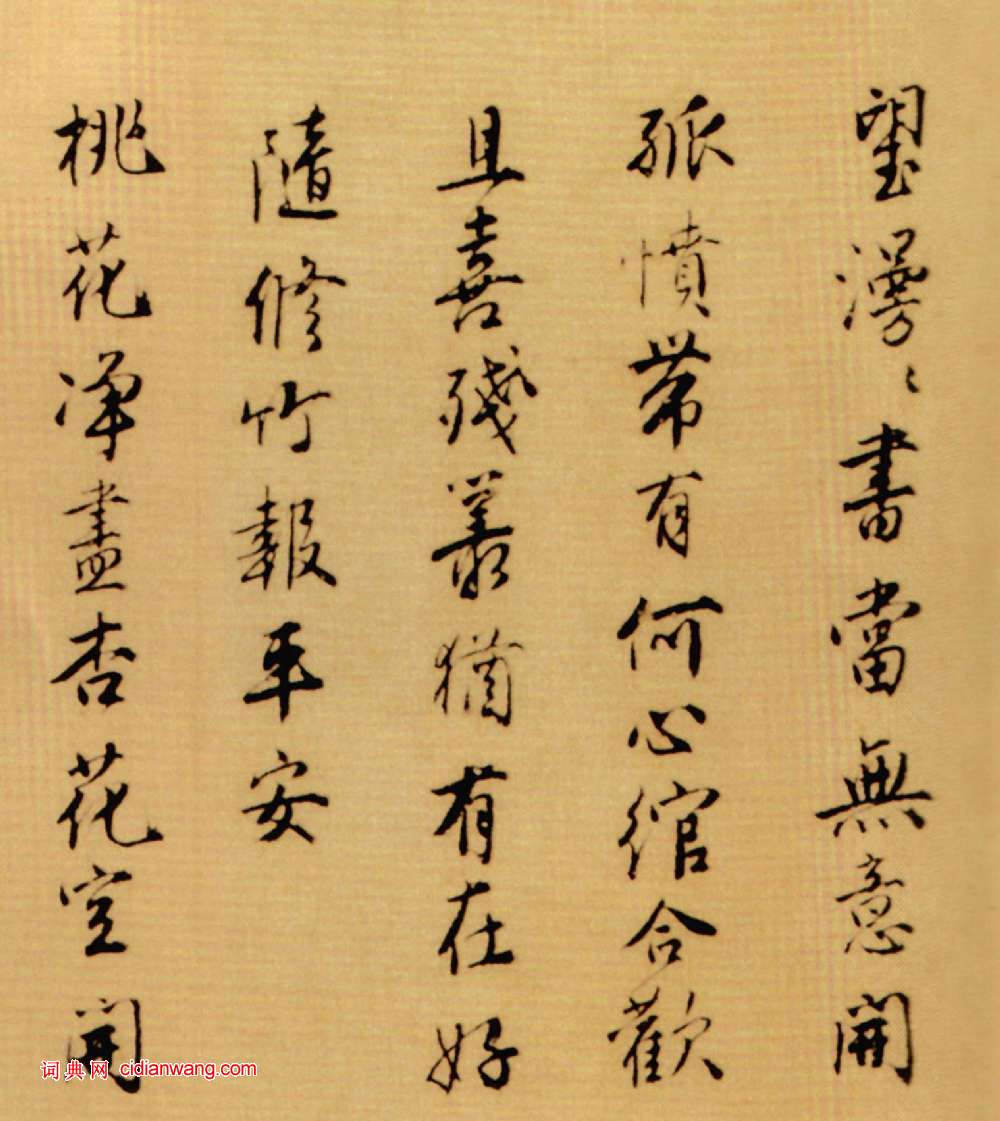 望漫々書當無意開
孤憤帶有何心綰合歡
且喜殘叢猶有在好
隨修竹報平安
桃花淨盡杏花空開
词典网 cidianwang.com